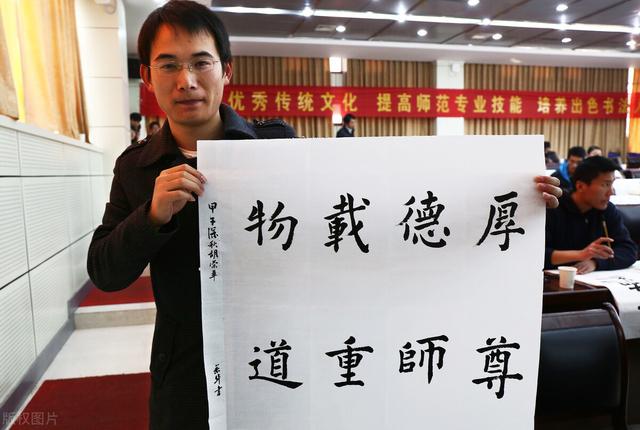 优秀传统文化 提高师范专业技能 培养出色书
厚德載物
尊師重道
甲午深秋
版权图片